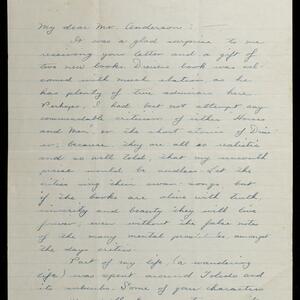 My dear Mr. Anderson:
It was a glad surprise to me
receiving your letter and a gift of
two new books. Dreiser's book was wel-
comed with much elation as he
has plenty of true admirers here.
Perhaps, I had best not attempt any
commendable criticism of either "Horses
and Men", or the short stories of Drei-
ser, because they are all so realistic
and so well told, that my
praise would be endless. Let the
critics sing their swan songs but
if the books are alive with truth,
sincerity and beauty they will live
forever, even without the false notes
of the many mental amongst
the days critics.
Part of my life (a wandering
life) was spent around Toledo and
its suburbs. Some of your characters